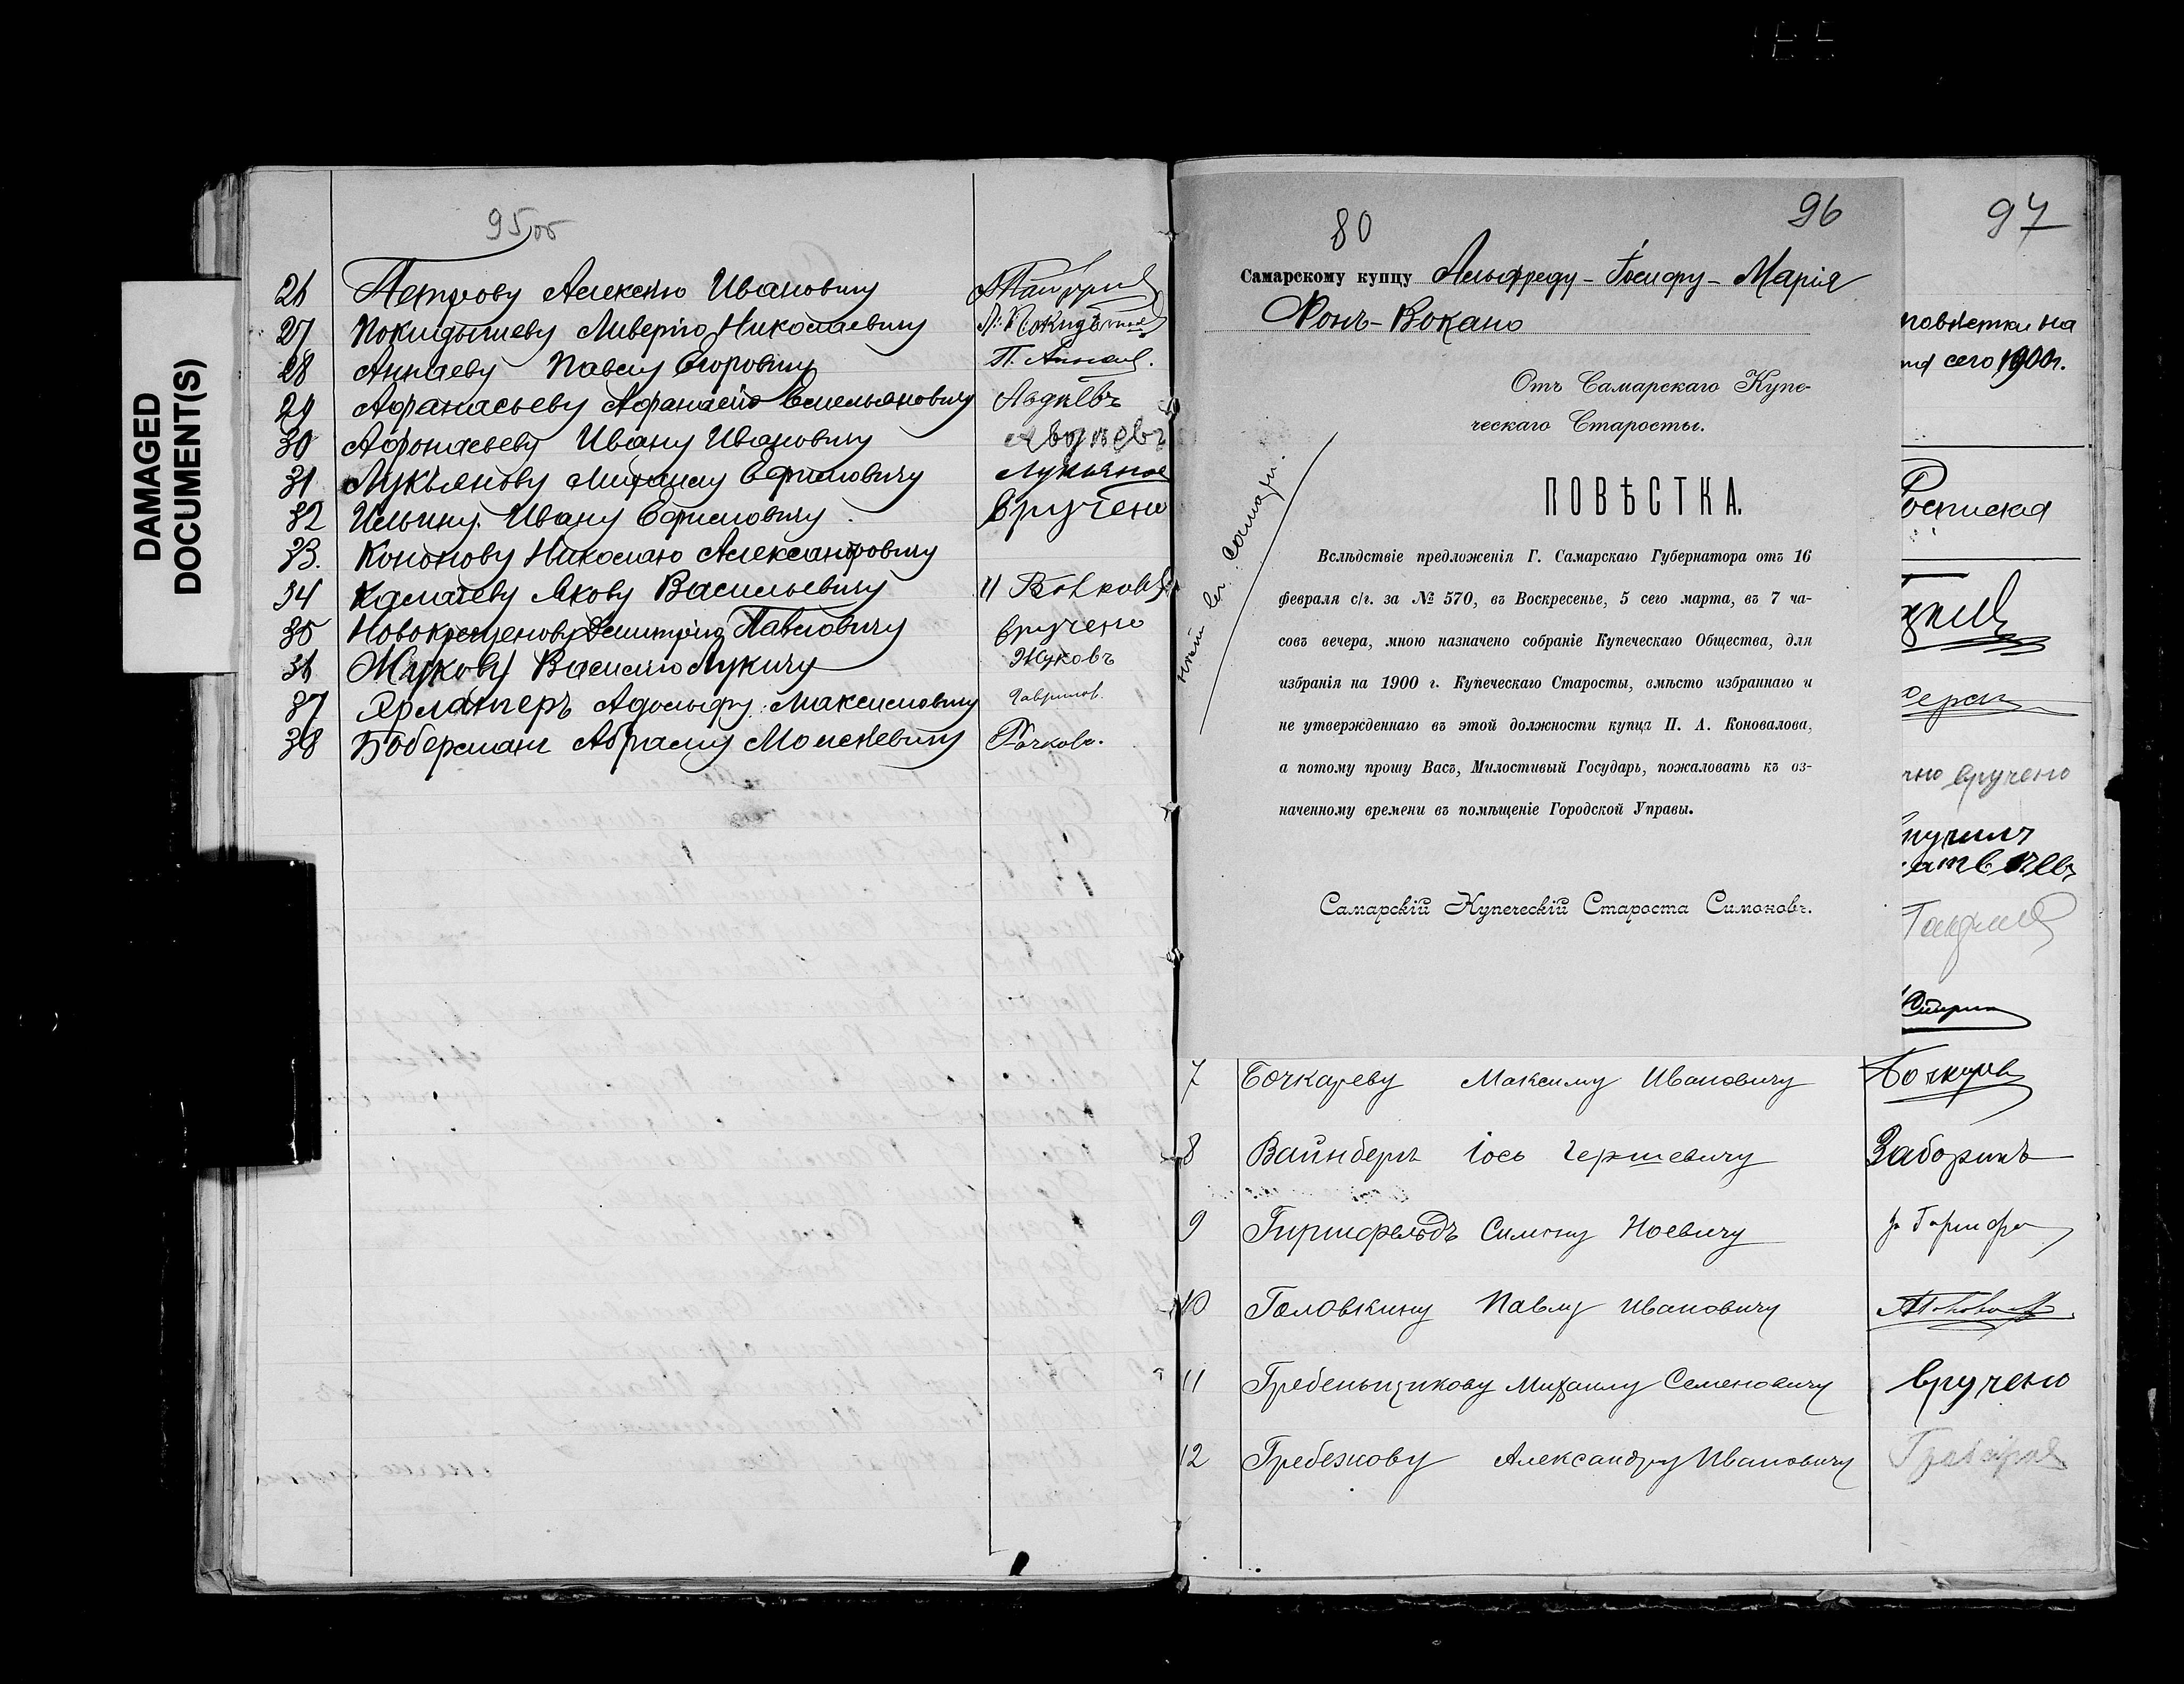 DAMAGED
DOCUMENT(S)
95 об
26 Петрову Алексею Ивановичу
27 Покидышеву Ливерію Николаевичу
28 Аннаеву Павлу Егоровичу П. Аннаев.
29 Афанасьеву Афанасію Емельяновичу Авдѣевъ
30 Афонасьеву Ивану Ивановичу Авдѣевъ
31 Лукьянову Михаилу Ефимовичу Лукьянов
32 Ильину Ивану Ефимовичу вручено
33. Кононову Николаю Александровичу
34 Камаеву Якову Васильевичу
35 Новокрещенову Дмитрію Павловичу вручено
36 Жукову Василию Лукичу Жуковъ
37 Ярмаркеръ Адольфу Максимовичу Гаврилов.
38 Боберман Абраму Мошкевичу Рочков.
80
96
Самарскому купцу Альфреду-Іосифу-Марія
Фонъ-Вокано
Отъ Самарскаго Купе-
ческаго Старосты.
ПОВѢСТКА.
Вслѣдствіе предложенія Г. Самарскаго Губернатора отъ 16
февраля с/г. за № 570, въ Воскресенье, 5 сего марта, въ 7 ча-
совъ вечера, мною назначено собраніе Купеческаго Общества, для
избранія на 1900 г. Купеческаго Старосты, вмѣсто избраннаго и
не утвержденнаго въ этой должности купца П. А. Коновалова,
а потому прошу Васъ, Милостивый Государь, пожаловать къ оз-
наченному времени въ помѣщеніе Городской Управы.
Самарскій Купеческій Староста Симоновъ.
97
повѣстки на
сего 1900 г.
Росписка
вручено
7 Бочкареву Максиму Ивановичу Бочкарев
8 Вайнберг Іось Гершевичу Заборинъ
9 Гиршфельдъ Симону Ноевичу
10 Головкину Павлу Ивановичу
11 Гребеньщикову Михаилу Семеновичу вручено
12 Гребежову Александру Ивановичу